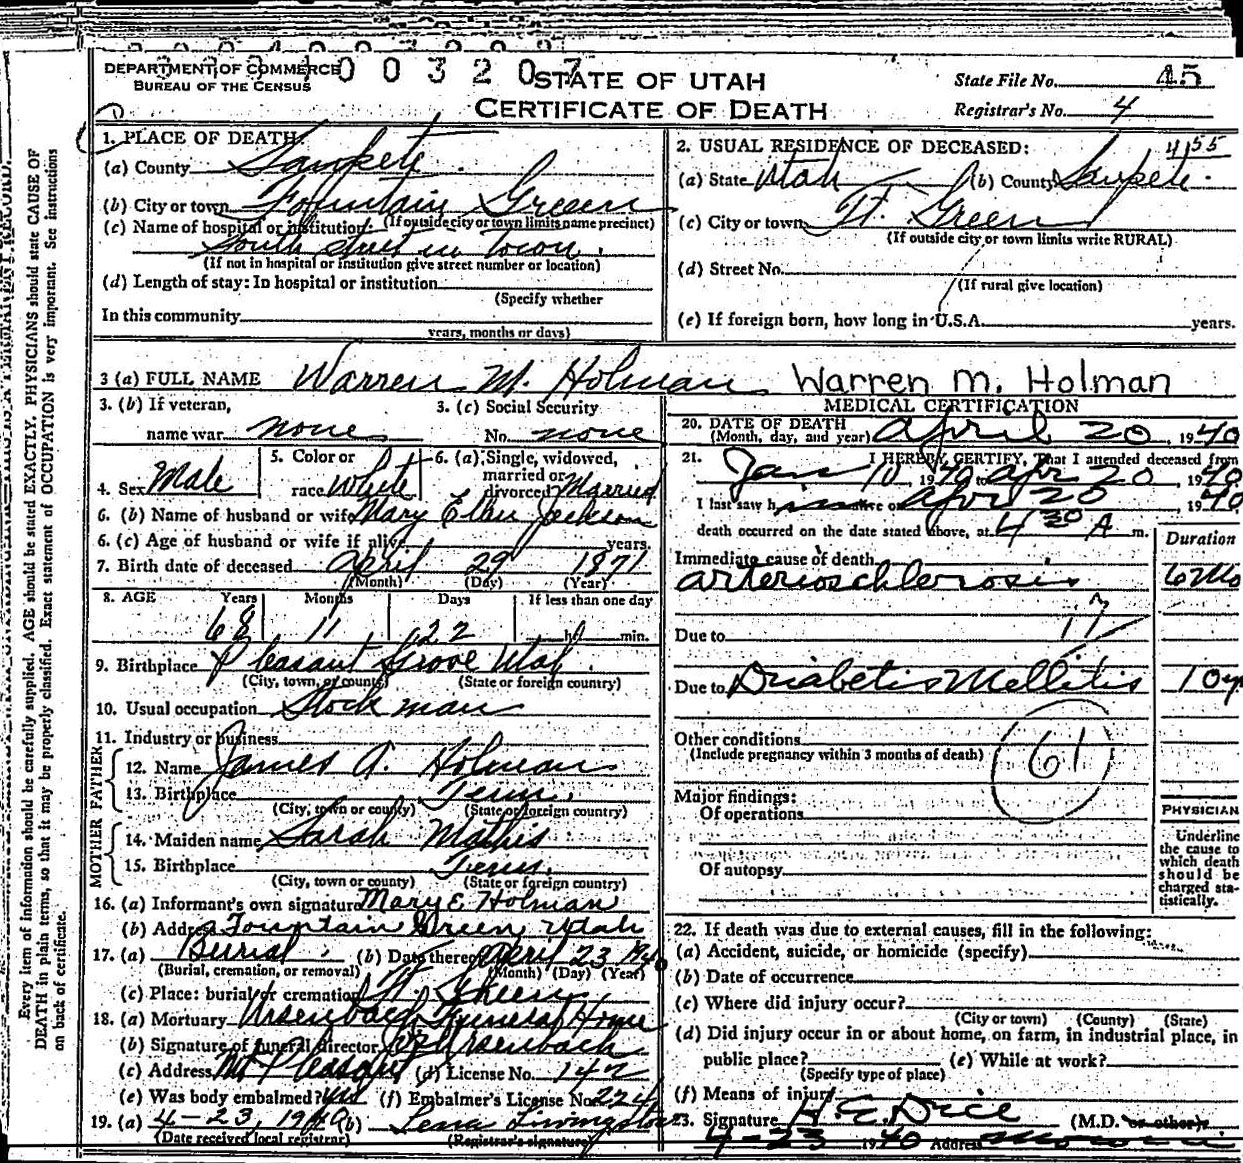 DEPARTMENT OF COMMERCE
BUREAU OF THE CENSUS
0 0 3 2 0 7
STATE OF UTAH
CERTIFICATE OF DEATH
State File No. 45
Registrar's No. 4
1. PLACE OF DEATH:
(a) County Sanpete
(b) City or town Fountain Green
(If outside city or town limits name precinct)
(c) Name of hospital or institution:
South street in town.
(If not in hospital or institution give street number or location)
(d) Length of stay: In hospital or institution
(Specify whether
In this community
years, months or days)
2. USUAL RESIDENCE OF DECEASED:
4155
(a) State Utah (b) County Sanpete.
(c) City or town Ft. Green
(If outside city or town limits write RURAL)
(d) Street No.
(If rural give location)
(e) If foreign born, how long in U.S.A. years.
3 (a) FULL NAME Warren M. Holman Warren M. Holman
3. (b) If veteran,
name war none
3. (c) Social Security
No. none
4. Sex Male
5. Color or
race White
6. (a) Single, widowed,
married or
divorced Married
6. (b) Name of husband or wife Mary Ellen Jackson
6. (c) Age of husband or wife if alive years
7. Birth date of deceased April 29 1871
(Month) (Day) (Year)
8. AGE Years Months Days If less than one day
68 11 22 hr. min.
9. Birthplace Pleasant Grove Utah.
(City, town, or county) (State or foreign country)
10. Usual occupation Stockman
11. Industry or business
FATHER
12. Name James A. Holman
13. Birthplace Tenn.
(City, town or county) (State or foreign country)
MOTHER
14. Maiden name Sarah Mathis
15. Birthplace Tenn.
(City, town or county) (State or foreign country)
16. (a) Informant's own signature Mary E Holman
(b) Address Fountain Green Utah
17. (a) Burial. (b) Date thereof April 23 1940
(Burial, cremation, or removal) (Month) (Day) (Year)
(c) Place: burial or cremation Ft. Green
18. (a) Mortuary Ursenbach Funeral Home
(b) Signature of funeral director Ursenbach
(c) Address Mt Pleasant (d) License No. 142
(e) Was body embalmed? yes (f) Embalmer's License No. 224
19. (a) 4-23, 1940 (b) Lena Livingston
(Date received local registrar) (Registrar's signature)
MEDICAL CERTIFICATION
20. DATE OF DEATH
(Month, day, and year) April 20, 1940
21. I HEREBY CERTIFY, That I attended deceased from
Jan 10, 1940 to Apr 20 1940
I last saw him alive on Apr 20, 1940
death occurred on the date stated above, at 4 30 A m.
Duration
Immediate cause of death
arterioschlerosis 6 Mo
17
Due to
Due to Diabetis Mellitis 10 yr
Other conditions
(Include pregnancy within 3 months of death)
61
Major findings:
Of operations
Of autopsy
PHYSICIAN
Underline
the cause to
which death
should be
charged sta-
tistically.
22. If death was due to external causes, fill in the following:
(a) Accident, suicide, or homicide (specify)
(b) Date of occurrence
(c) Where did injury occur?
(City or town) (County) (State)
(d) Did injury occur in or about home, on farm, in industrial place, in
public place? (e) While at work?
(Specify type of place)
(f) Means of injury
23. Signature (M.D. or other)
4-23 1940 Address
Every item of information should be carefully supplied. AGE should be stated EXACTLY. PHYSICIANS should state CAUSE OF
DEATH in plain terms, so that it may be properly classified. Exact statement of OCCUPATION is very important. See instructions
on back of certificate.